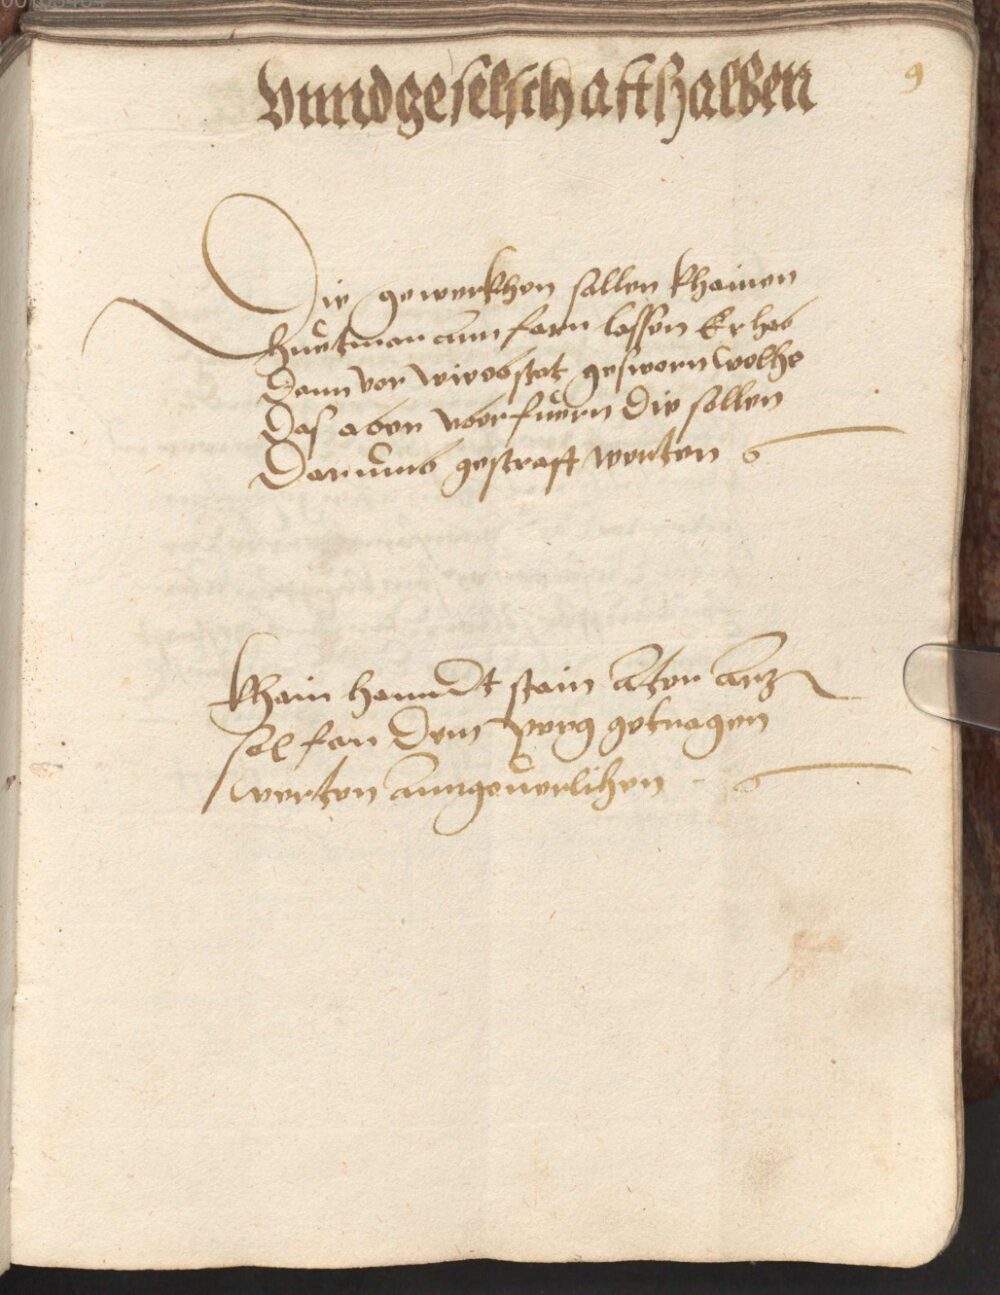 9
Vnnd geselschafftzhalben
Die gewerkhen sollen khainen
huetman ann farn lassen Er hab
dann vor wie obstet gesworn welhe
das aber vberfuern die sollen
darumb gestrafft werden
Khain hanndt stain Ader artz
sol fan dem perg getragen
werden anngeuerlichen